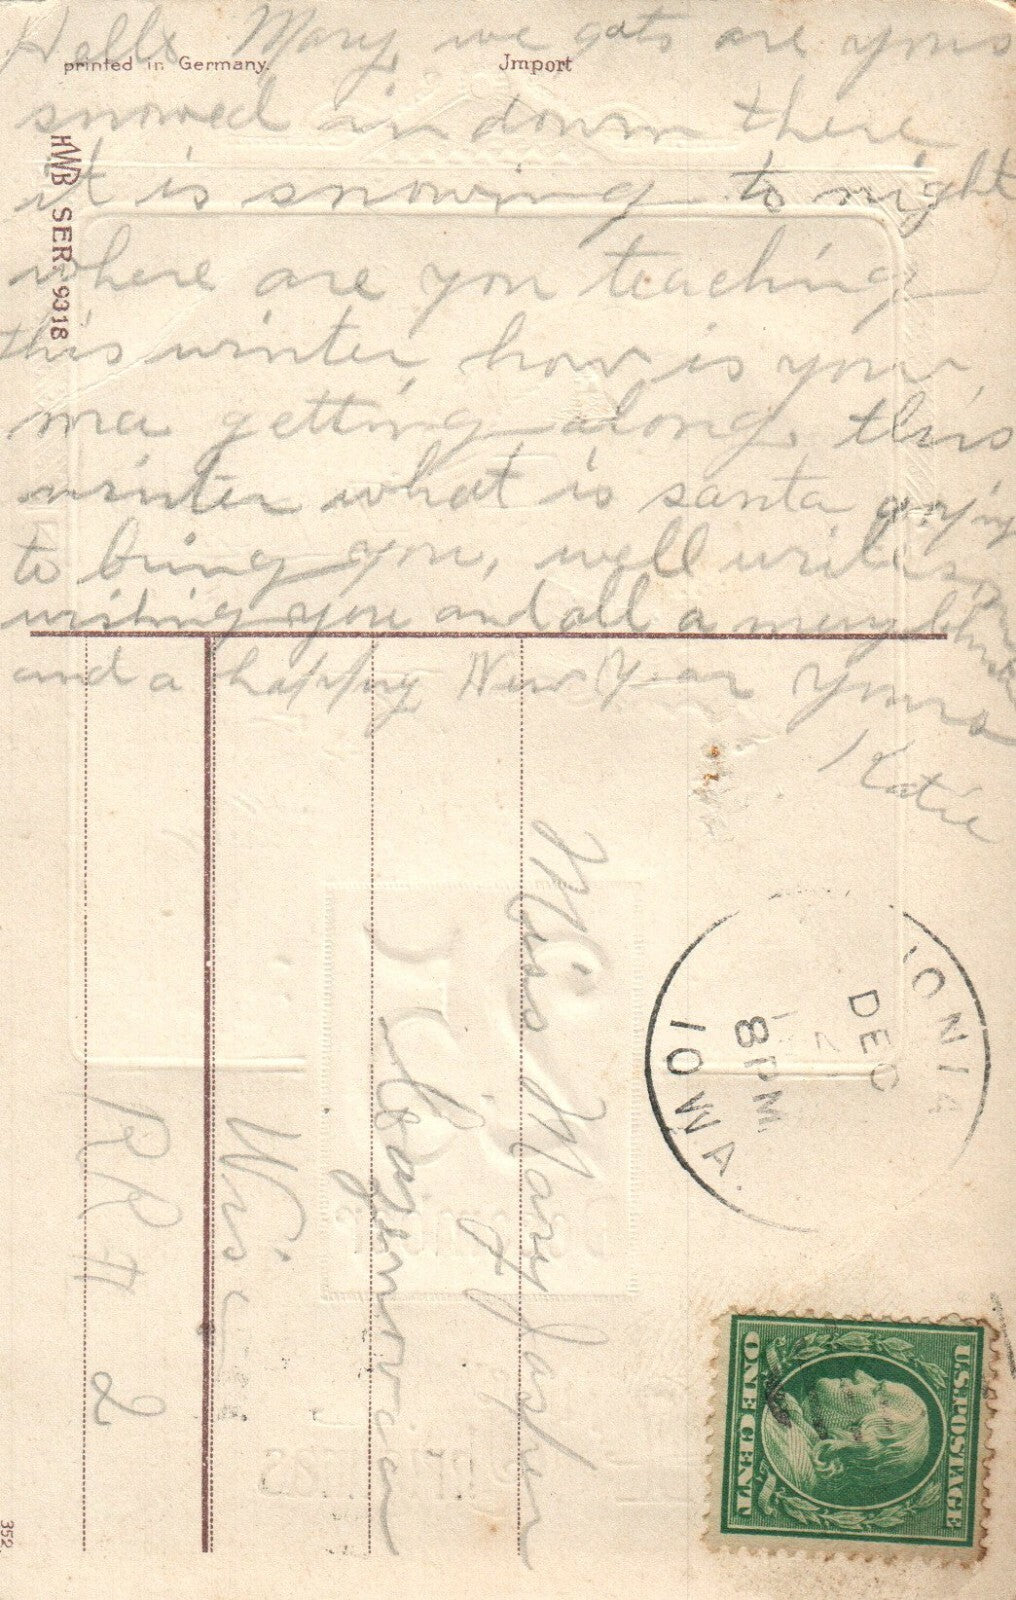 Hello Mary, we gots are you
printed in Germany. Jmport
snowed in down there
it is snowing to night
HWB SER. 9318
where are you teaching
this winter how is your
ma getting along, this
winter what is santa going
to bring you, well write soon
wishing you and all a mery Christmas
and a happy New Year yours
Katie
Miss Mary Jasper
Wis
RR # 2
ONIA
DEC
2
8 PM
IOWA.
U.S. POSTAGE
ONE CENT
352